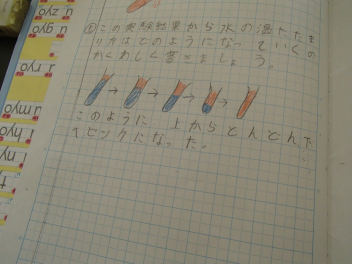 ①この実験結果から水の温たたま
り方はどのようになっていくの
かくわしく書きましょう。
このように、上からどんどん下
へピンクになった。
u zyo
u gyo
i ryo
i myo
i hyo
i nyo